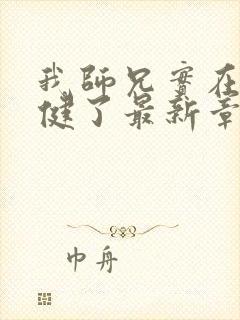 我師兄實在
健了最新章
巾舟